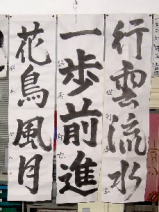 行雲流水
一歩前進
花鳥風月